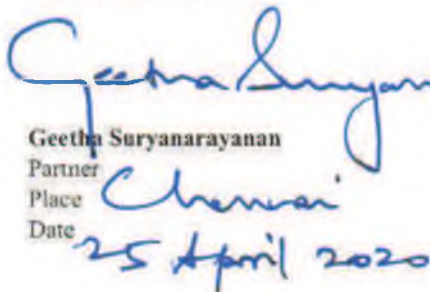 Geetha Suryan
Geetha Suryanarayanan
Partner
Place Chennai
Date 25 April 2020